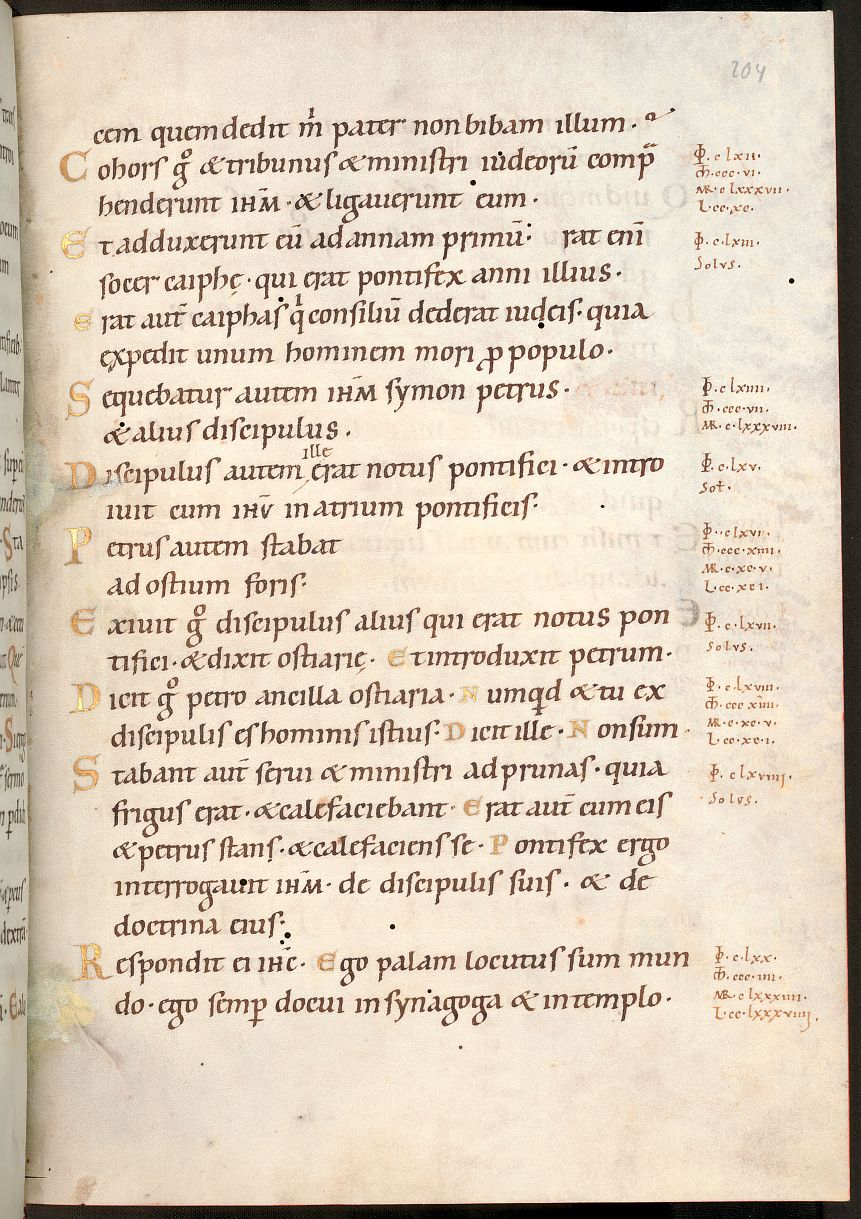 204
cem quem dedit m̅ pater non bibam illum.
Cohors gͦ & tribunus & ministri iudeorū comp̄
henderunt ihm̅ · & ligauerunt eum ·
Et adduxerunt eū ad annam primū· rat eni̅
socer caiphę · qui erat pontifex anni illius ·
Erat aut̅ caiphas q̍ consiliū dederat iudęis · quia
expedit unum hominem mori ꝓ populo ·
Sequebatur autem ihm̅ symon petrus ·
& alius discipulus .
Discipulus autem ille erat notus pontifici · & intro
iuit cum ihv̅ in atrium pontificis ·
Petrus autem stabat
ad ostium foris ·
Exiuit gͦ discipulus alius qui erat notus pon
tifici · & dixit ostiarię · Et introduxit petrum ·
Dicit gͦ petro ancilla ostiaria · Numqd & tu ex
discipulis es hominis istius · Dicit ille · Non sum ·
Stabant aut̅ serui & ministri ad prunas · quia
frigus erat · & calefaciebant · Erat aut̅ cum eis
& petrus stans · & calefaciens se · Pontifex ergo
interrogauit ihm̅ · de discipulis suis · & de
doctrina eius ·
Respondit ei ihc̅ · Ego palam locutus sum mun
do · ego semꝑ docui in synagoga & in templo ·
c lxii ·
ccc · vi ·
c lxxxvii ·
L · cc · xc ·
c · lxiii ·
Solvs ·
c lxiiii ·
ccc · vii ·
c · lxxxviii ·
c · lxv ·
Sot̅ ·
c lxvi ·
ccc · xiiii ·
c · xc · v ·
L · cc · xci ·
c · lxvii ·
Solvs ·
c · lxviii ·
ccc xiiii ·
c · xc · v ·
L · cc · xc · i ·
c · lxviiii ·
Solvs ·
c · lxx ·
ccc · iiii ·
c lxxxiiii ·
L · cc · lxxxviiii ·